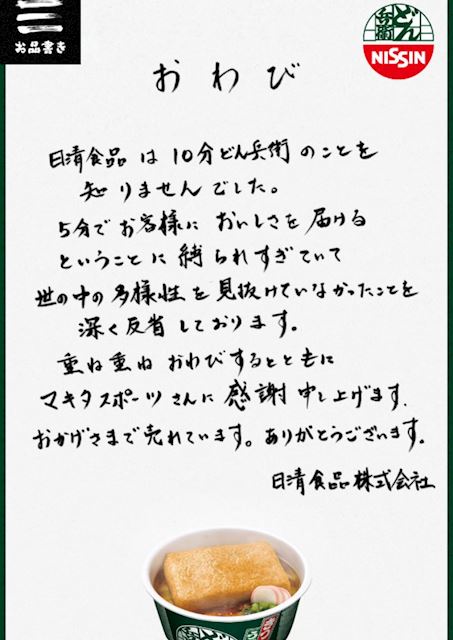 お品書き
どん兵衛
NISSIN
おわび
日清食品は10分どん兵衛のことを
知りませんでした。
5分でお客様においしさを届ける
ということに縛られすぎていて
世の中の多様性を見抜けていなかったことを
深く反省しております。
重ね重ねおわびするとともに
マキタスポーツさんに感謝申し上げます.
おかげさまで売れています。ありがとうございます。
日清食品株式会社
どん